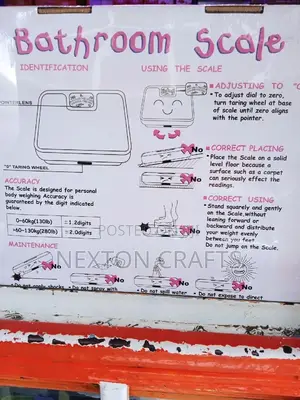 Bathroom Scale
IDENTIFICATION
USING THE SCALE
POINTER LENS
"0" TARING WHEEL
ADJUSTING TO "0
To adjust dial to zero,
turn taring wheel at base
of scale until zero aligns
with the pointer.
No
CORRECT PLACING
Place the Scale on a solid
level floor because a
surface such as a carpet
can seriously effect the
readings.
No
ACCURACY
The Scale is designed for personal
body weighing Accuracy is
guaranteed by the digit indicated
below.
0-60kg(130lb) =±2digits
>60-130kg(280lb) =±2.0digits
No
CORRECT USING
Stand squarely and gently
on the Scale, without
leaning forward or
backward and distribute
your weight evenly
between you feet
Do not jump on the Scale.
POSTED
NEXTON CRAFTS
MAINTENANCE
No
No
No
Do not spray with
Do not spill water
Do not expose to direct